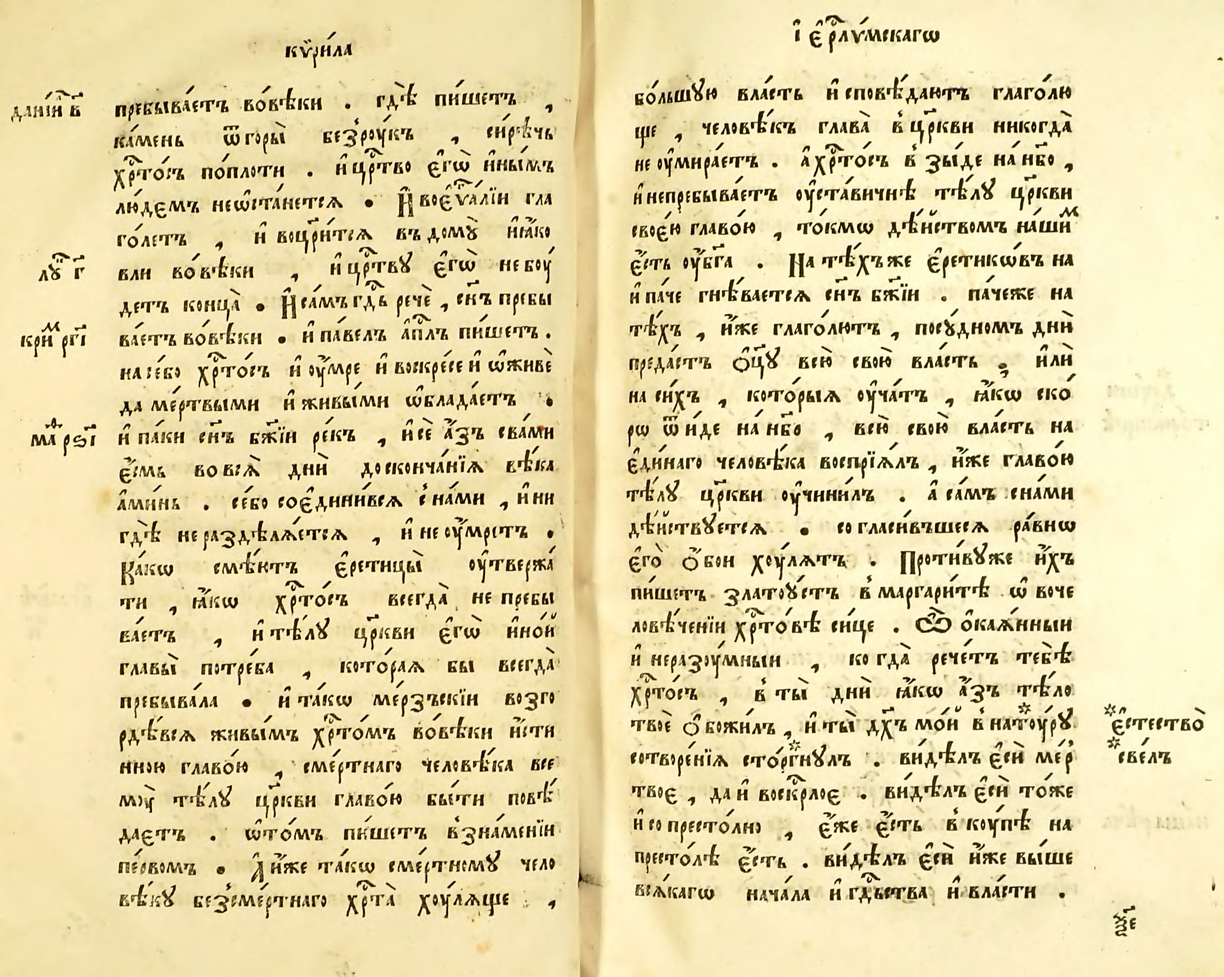 кѷри́ла
дані́ил в҃
пребыва́етъ во́вѣки . гдѣ̀ пи́шетъ ,
ка́мень ѿгоры̀ безро́укъ , си́рѣчь
хр҇то́съ по́плоти . и҆цр҇тво є҆гѡ̀ и҆ны́мъ
лю́демъ неѡ҆ста́нетсѧ . И҆воє҆ѵⷢ҇а́лїи гла
го́летъ , и҆ воцр҃и́тсѧ въдомꙋ̀ и҆ꙗ҆́ко
лꙋ҃ г҃
вли во́вѣки , и҆ цр҇твꙋ є҆гѡ̀ небоу́
детъ конца̀ . И҆са́мъ гдⷭ҇ь речѐ , сн҃ъ пребы
кри́ⷨ рг҃і
ва́етъ во́вѣки . и҆па́велъ а҆п҇лъ пи́шетъ .
на се́бо хр҇то́съ и҆ оу҆́мре и҆ воскре́се и҆ ѡ҆живѐ
да ме́ртвыми и҆живы́ми ѡ҆блада́етъ .
маⷴ҇ рѕ҃і
и҆ па́ки сн҃ъ бж҃їи ре́къ , и҆сѐ а҆́зъ сва́ми
є҆́смь во всѧ̀ днѝ досконча́нїѧ вѣ́ка
а҆ми́нь . се́бо соє҆дини́всѧ сна́ми , и҆ни
гдѣ̀ нераздѣлѧ́етсѧ , и҆ не оу҆́мретъ .
Ка́кѡ смѣ́ютъ є҆ретицы̀ оу҆твержа́
ти , ꙗ҆́кѡ хр҇то́съ всегда̀ не пребы
ва́етъ , и҆тѣ́лꙋ цр҃кви є҆гѡ̀ и҆но́й
главы̀ потре́ба , кото́раѧ бы всегда̀
пребыва́ла . и҆та́кѡ ме́рзъскїи возго
рдѣ́всѧ живы́мъ хр҇то́мъ во́вѣки и҆́сти
нною главо́ю , сме́ртнаго человѣ́ка все
мꙋ̀ тѣ́лꙋ цр҃кви главо́ю бы́ти повѣ́
даетъ . ѡ҆то́мъ пи́шетъ взна́менїи
пе́рвомъ . А҆ и҆́же та́кѡ сме́ртномꙋ чело
вѣ́кꙋ безсме́ртнаго хр҇та̀ хоу́лѧще ,
і҆є҆рⷭ҇лѵ́мскагѡ
бо́льшꙋю вла́сть и҆сповѣ́даютъ глаго́лю
ще , человѣ́къ глава̀ в҆цр҃кви никогда̀
не оу҆мира́етъ . а҆хр҇то́съ в҆зы́де на́ нб҃о ,
и҆непребыва́етъ оу҆ста́вичнѣ тѣ́лꙋ цр҃кви
свое́ю главо́ю , то́кмѡ дѣ́йствомъ на́шиⷨ
є҆́сть оу҆́бг҃а . На тѣ́хъже є҆ретикѡ́въ на
и҆па́че гнѣ́вается сн҃ъ бж҃їи . па́чеже на
тѣ́хъ , и҆́же глаго́лютъ , посꙋ́дномъ днѝ
преда́стъ ѻ҆ц҃ꙋ всю̀ свою̀ вла́сть , и҆лѝ
на си́хъ , кото́рыѧ оу҆́чатъ , ꙗ҆́кѡ ско
рѡ ѿи́де на́ нб҃о , всю̀ свою̀ вла́сть на
є҆ди́наго человѣ́ка воспрїѧ́лъ , и҆́же главо́ю
тѣ́лꙋ цр҃кви оу҆чини́лъ . а҆ са́мъ сна́ми
дѣ́йствꙋетсѧ . согласи́въшеесѧ ра́внѡ
є҆го̀ ѻ҆́бои хоу́лѧтъ . Проти́вꙋже и҆́хъ
пи́шетъ златоу́стъ в҆маргари́тѣ ѡ҆ воче
ловѣ́ченїи хр҇то́вѣ си́це . Ѽ о҆каѧ́нныи
и҆ неразоу́мныи , когда̀ рече́тъ тебѣ̀
хр҇то́съ , в҆ ты̀ днѝ ꙗ҆́кѡ а҆́зъ тѣ́ло
твоѐ ѻ҆божи́лъ , и҆ты̀ дх҃ъ мо́й в҆натоу́рꙋ
*є҆стество̀
сотворе́нїѧ сто́ргнꙋлъ . ви́дѣлъ є҆сѝ ме́р
*све́лъ
твое , да и҆ воскр҇лое . ви́дѣлъ є҆сѝ то́же
и҆ сопресто́лно , є҆́же є҆́сть в҆коу́пѣ на
престо́лѣ є҆́сть . ви́дѣлъ є҆сѝ и҆́же вы́ше
всѧ́кагѡ нача́ла и҆ гдⷭ҇ьства и҆ вла́сти .
ѯ҃є